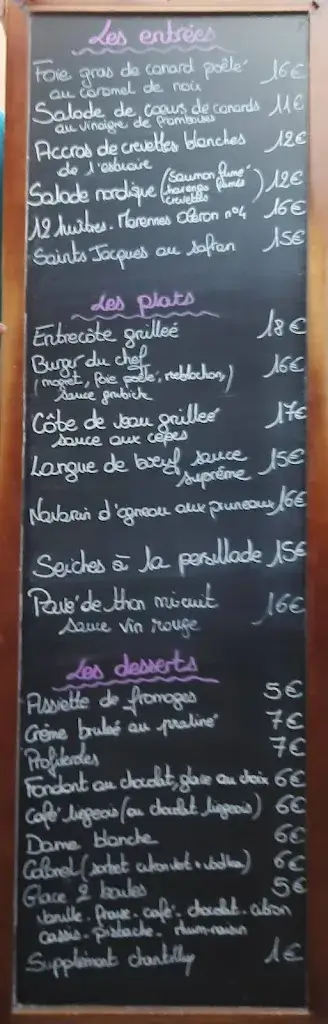 Les entrées
Foie gras de canard poêlé 16€
au caramel de noix
Salade de cœurs de canards 11€
au vinaigre de framboises
Accras de crevettes blanches 12€
de l'estuaire
Salade nordique (Saumon fumé harengs fumés crevettes) 12€
12 huîtres. Marennes Oléron n°4 16€
Saints Jacques au safran 15€
Les plats
Entrecôte grillée 18€
Burger du chef 16€
(magret, foie poêlé, reblochon,)
sauce
Côte de veau grillée 17€
sauce aux cèpes
Langue de bœuf sauce 15€
suprême
Navarin d'agneau aux pruneaux 16€
Seiches à la persillade 15€
Pavé de thon mi cuit 16€
sauce vin rouge
Les desserts
Assiette de fromages 5€
Crème brulée au praliné 7€
Profiteroles 7€
Fondant au chocolat, glace au choix 6€
Café liégeois (ou chocolat liégeois) 6€
Dame blanche 6€
Colonel (sorbet citron vert + vodka) 6€
Glace 2 boules 5€
vanille. fraise. café. chocolat. citron
cassis. pistache. rhum-raisin
Supplément chantilly 1€